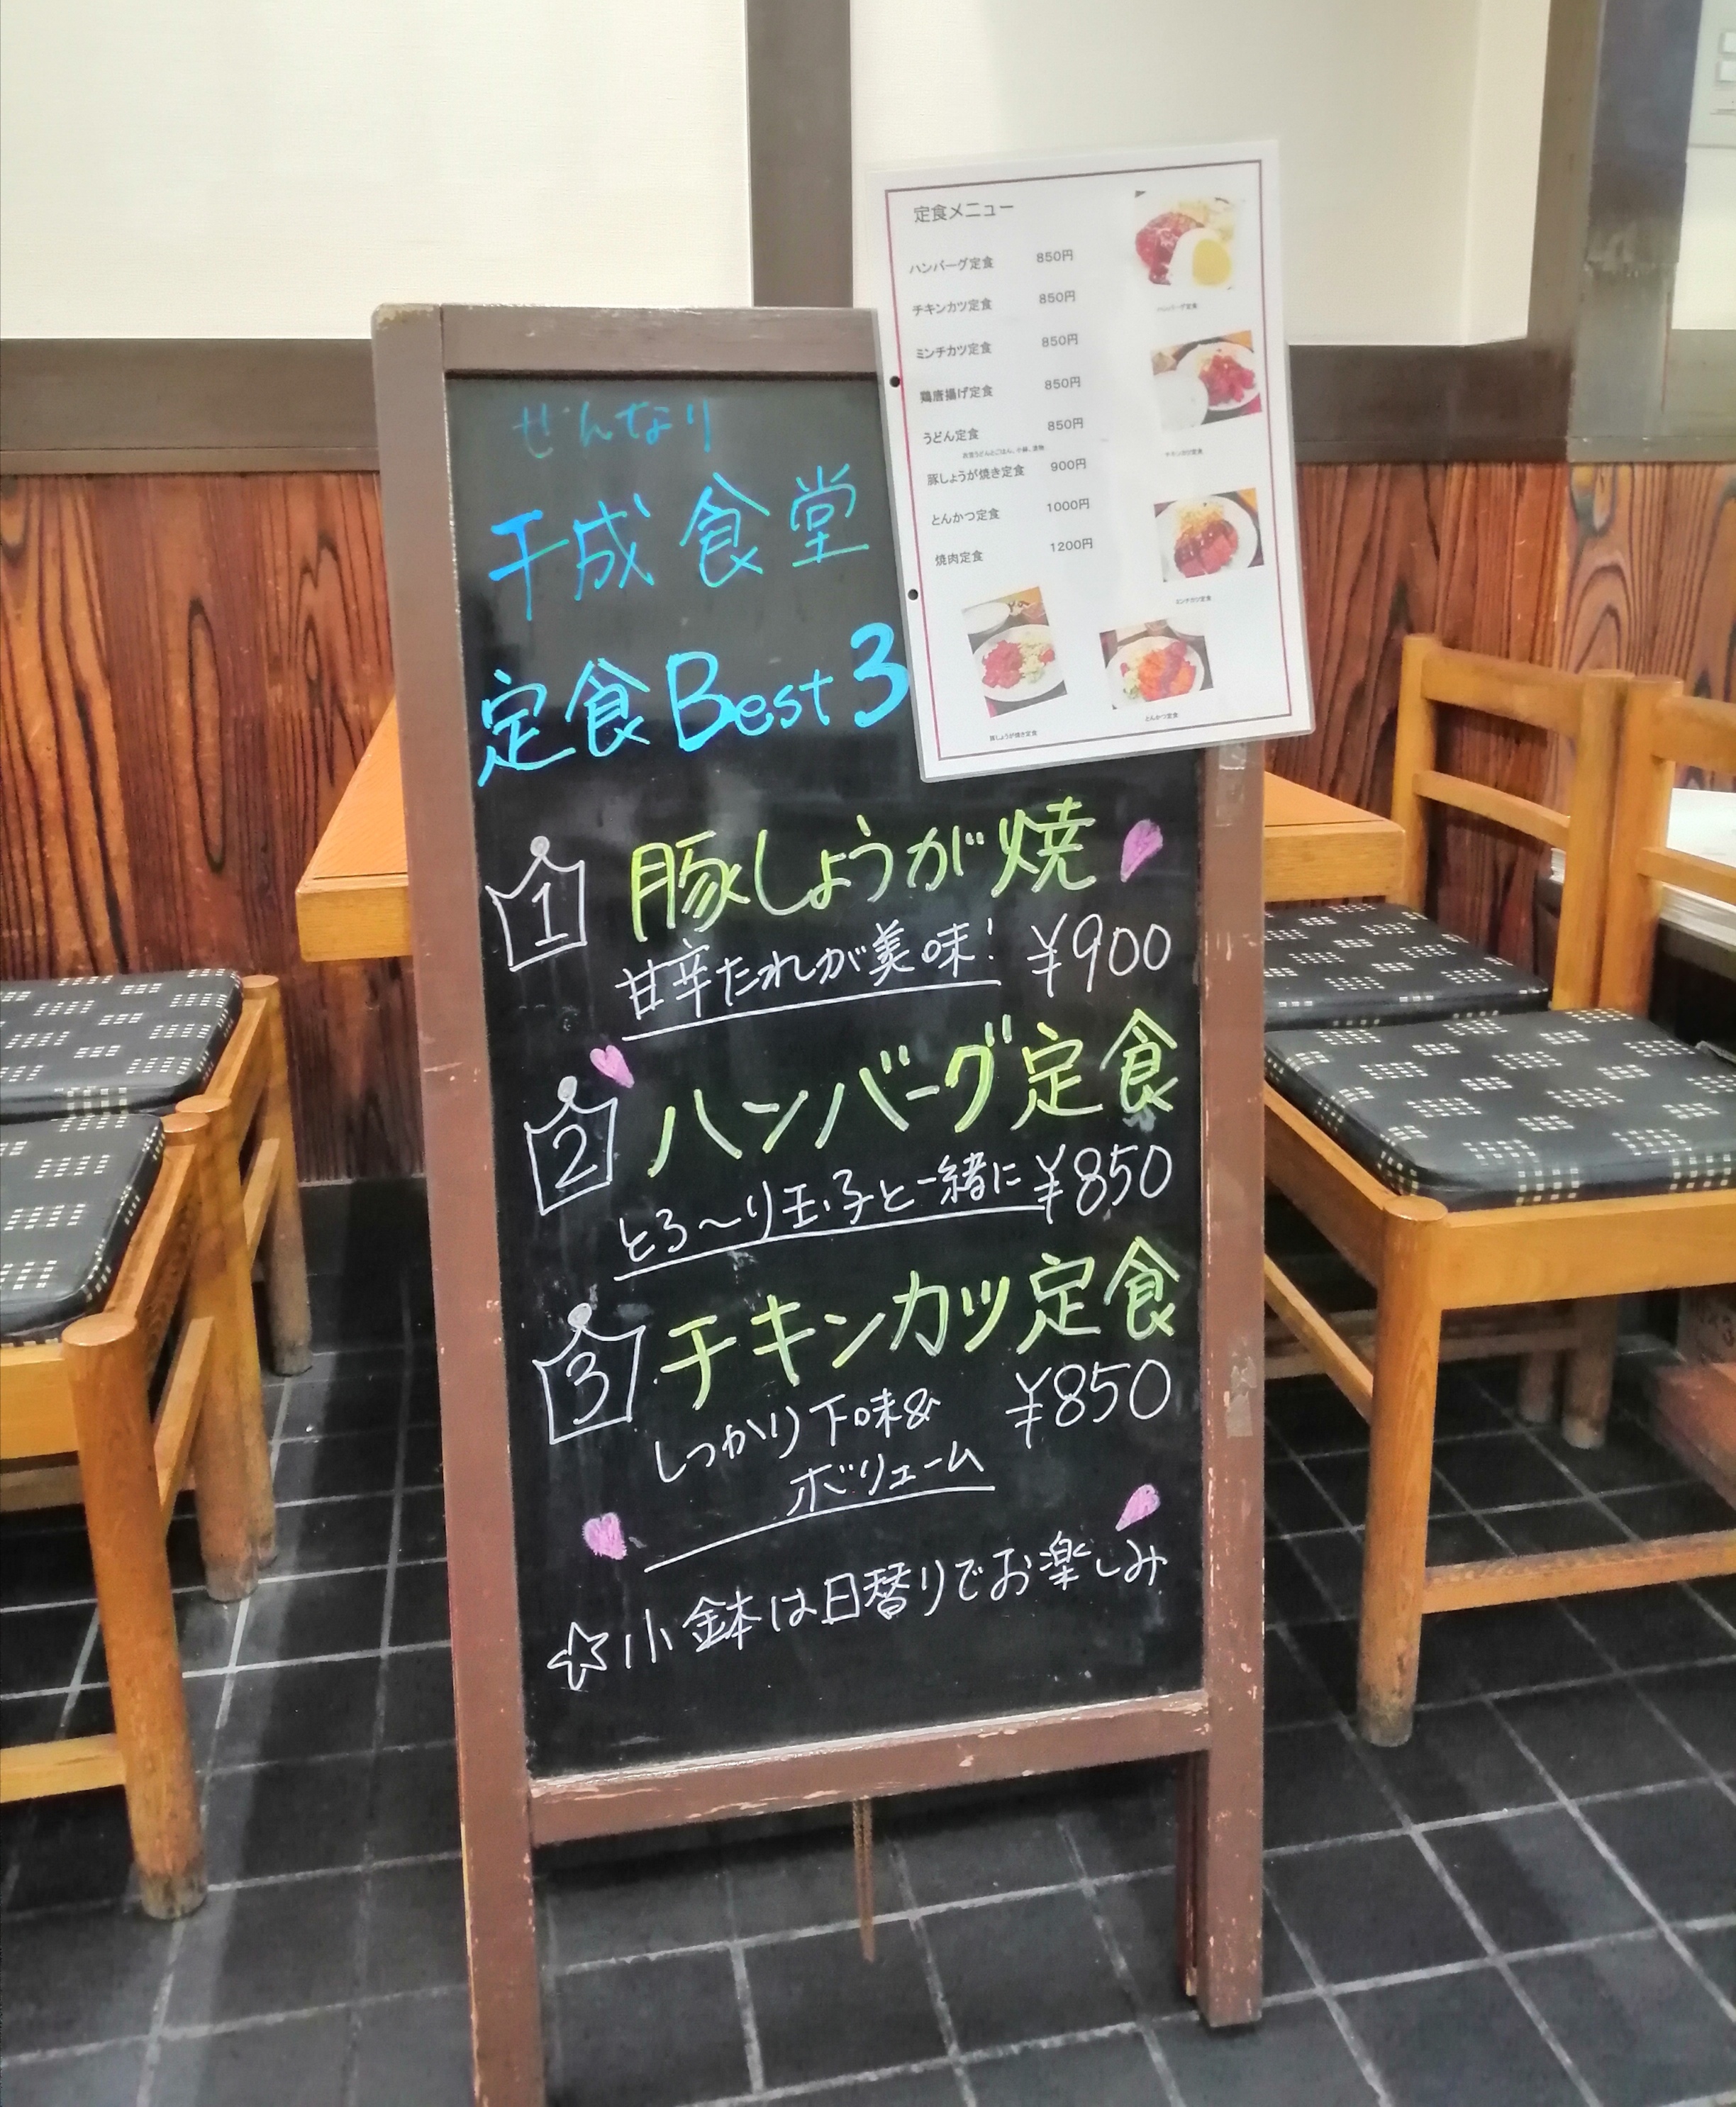 ぜんなり
千成食堂
定食Best3
1 豚しょうが焼
甘辛たれが美味! ¥900
2 ハンバーグ定食
とろ〜り玉子と一緒に ¥850
3 チキンカツ定食
しっかり下味& ¥850
ボリューム
☆小鉢は日替りでお楽しみ
定食メニュー
ハンバーグ定食 850円
チキンカツ定食 850円
ミンチカツ定食 850円
鶏唐揚げ定食 850円
うどん定食 850円
豚しょうが焼き定食 900円
とんかつ定食 1000円
焼肉定食 1200円
ハンバーグ定食
チキンカツ定食
ミンチカツ定食
豚しょうが焼き定食
とんかつ定食